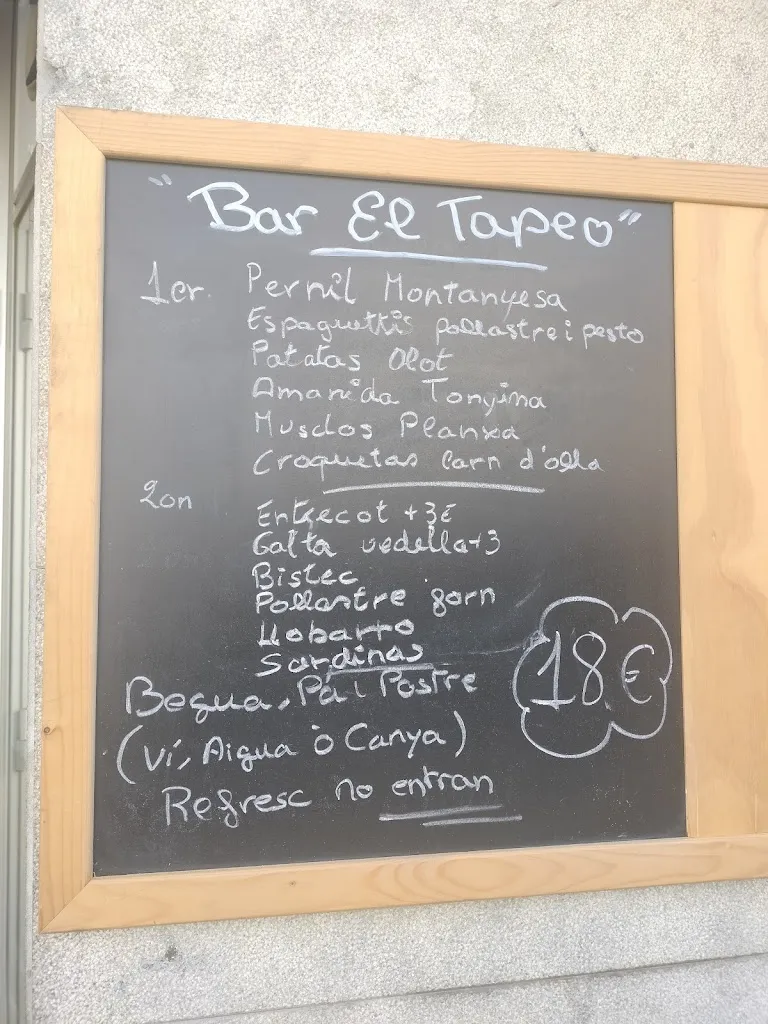 "Bar El Tapeo"
1er. Pernil Montanyesa
Espaguettis pollastre i pesto
Patatas Olot
Amanida Tonyina
Musclos Planxa
Croquetas Carn d'olla
2on Entrecot +3€
Galta vedella +3
Bistec
Pollastre forn
Llobarro
Sardinas
Begua, Pa i Postre
18€
(Ví, Aigua ò Canya)
Refresc no entran